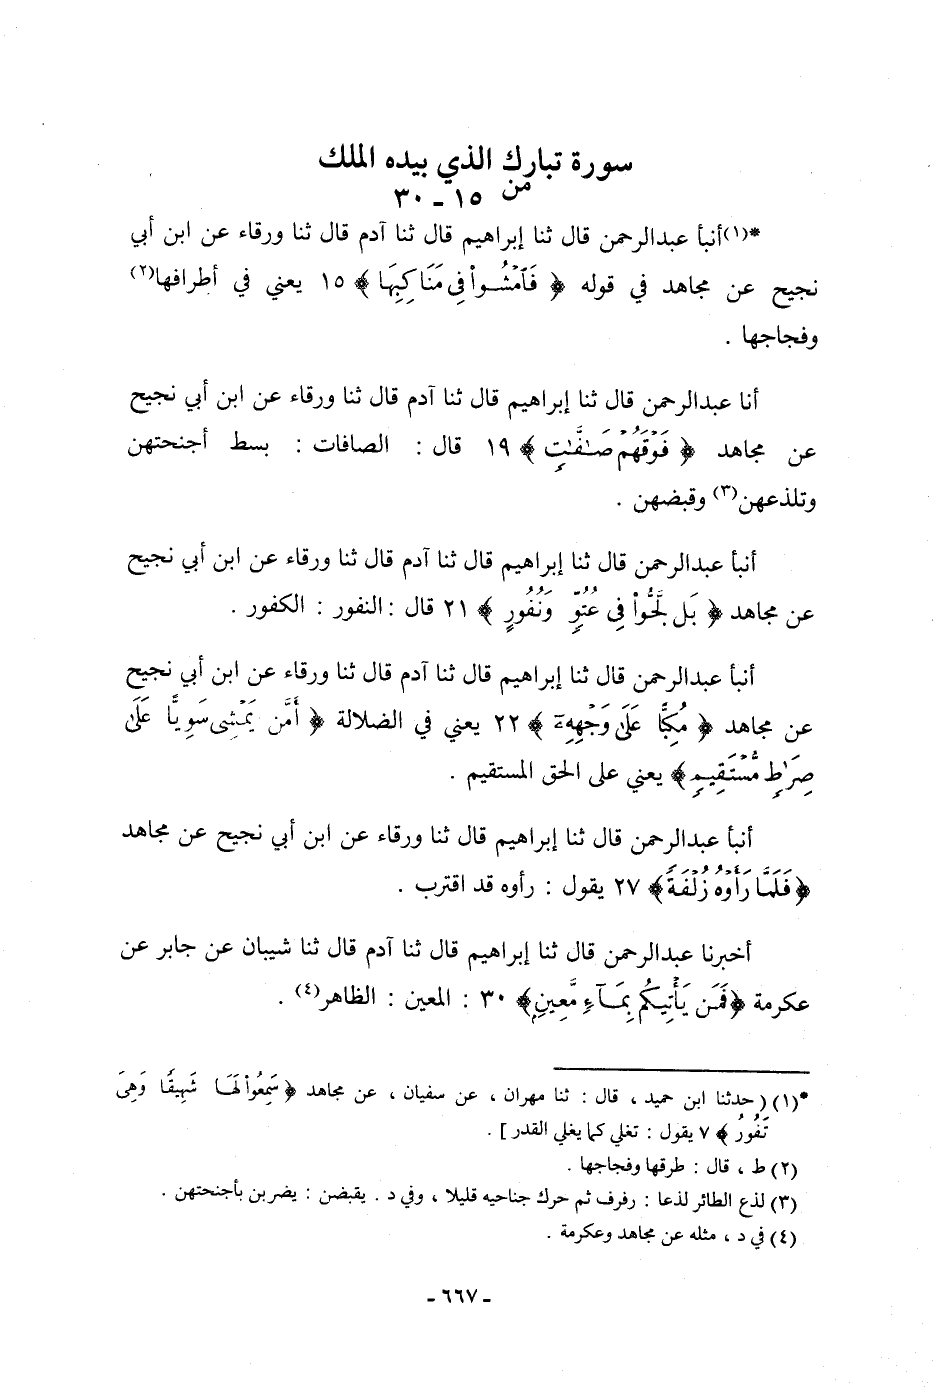 سورة تبارك الذي بيده الملك
من ١٥ ـ ٣٠
*(١)أنبأ عبدالرحمن قال ثنا إبراهيم قال ثنا آدم قال ثنا ورقاء عن ابن أبي
نجيح عن مجاهد في قوله ﴿ فَٱمْشُوا۟ فِى مَنَاكِبِهَا ﴾ ١٥ يعني في أطرافها(٢)
وفجاجها .
أنا عبدالرحمن قال ثنا إبراهيم قال ثنا آدم قال ثنا ورقاء عن ابن أبي نجيح
عن مجاهد ﴿ فَوْقَهُمْ صَـٰٓفَّـٰتٍ ﴾ ١٩ قال : الصافات : بسط أجنحتهن
وتلذعهن(٣) وقبضهن .
أنبأ عبدالرحمن قال ثنا إبراهيم قال ثنا آدم قال ثنا ورقاء عن ابن أبي نجيح
عن مجاهد ﴿ بَل لَّجُّوا۟ فِى عُتُوٍّ وَنُفُورٍ ﴾ ٢١ قال : النفور : الكفور .
أنبأ عبدالرحمن قال ثنا إبراهيم قال ثنا آدم قال ثنا ورقاء عن ابن أبي نجيح
عن مجاهد ﴿ مُكِبًّا عَلَىٰ وَجْهِهِۦٓ ﴾ ٢٢ يعني في الضلالة ﴿ أَمَّن يَمْشِى سَوِيًّا عَلَىٰ
صِرَٰطٍ مُّسْتَقِيمٍ ﴾ يعني على الحق المستقيم .
أنبأ عبدالرحمن قال ثنا إبراهيم قال ثنا ورقاء عن ابن أبي نجيح عن مجاهد
﴿ فَلَمَّا رَأَوْهُ زُلْفَةً ﴾ ٢٧ يقول : رأوه قد اقترب .
أخبرنا عبدالرحمن قال ثنا إبراهيم قال ثنا آدم قال ثنا شيبان عن جابر عن
عكرمة ﴿ فَمَن يَأْتِيكُم بِمَآءٍ مَّعِينٍۭ ﴾ ٣٠ : المعين : الظاهر(٤) .
*(١) ( حدثنا ابن حميد ، قال : ثنا مهران ، عن سفيان ، عن مجاهد ﴿ سَمِعُوا۟ لَهَا شَهِيقًا وَهِىَ
تَفُورُ ﴾ ٧ يقول : تغلي كما يغلي القدر ] .
(٢) ط ، قال : طرقها وفجاجها .
(٣) لذع الطائر لذعا : رفرف ثم حرك جناحيه قليلا ، وفي د . يقبضن : يضربن بأجنحتهن .
(٤) في د ، مثله عن مجاهد وعكرمة .
ـ ٦٦٧ ـ